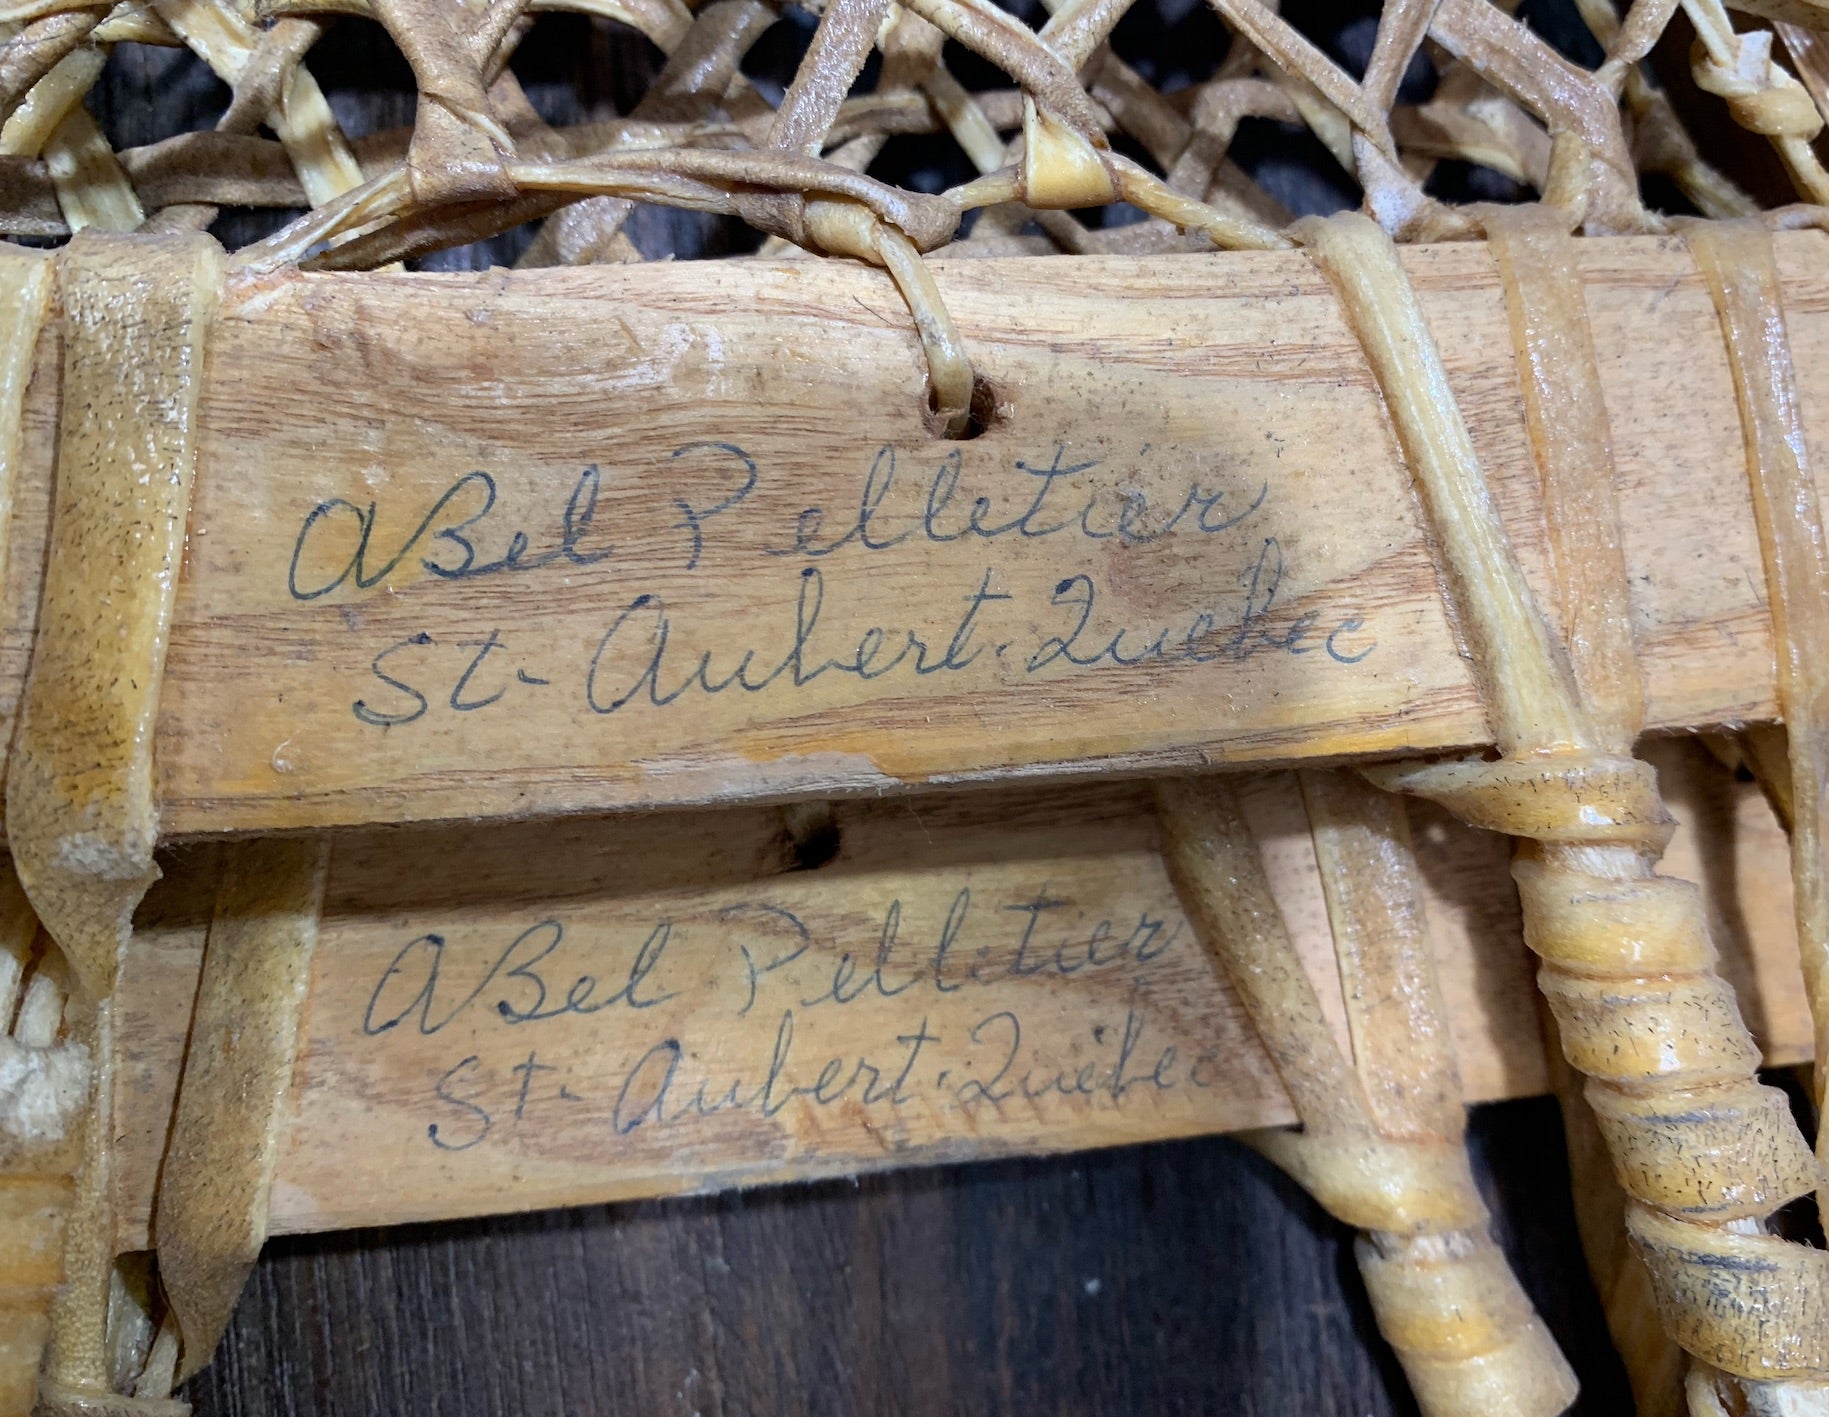 ABel Pelletier
St- Aubert. Quebec
ABel Pelletier
St- Aubert. Québec